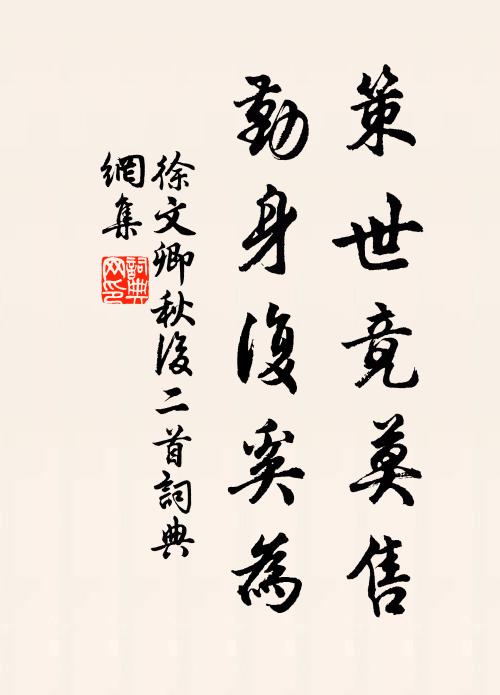 策世竟莫售
勤身復奚為
徐文卿秋後二首詞典
網集
詞典
网印